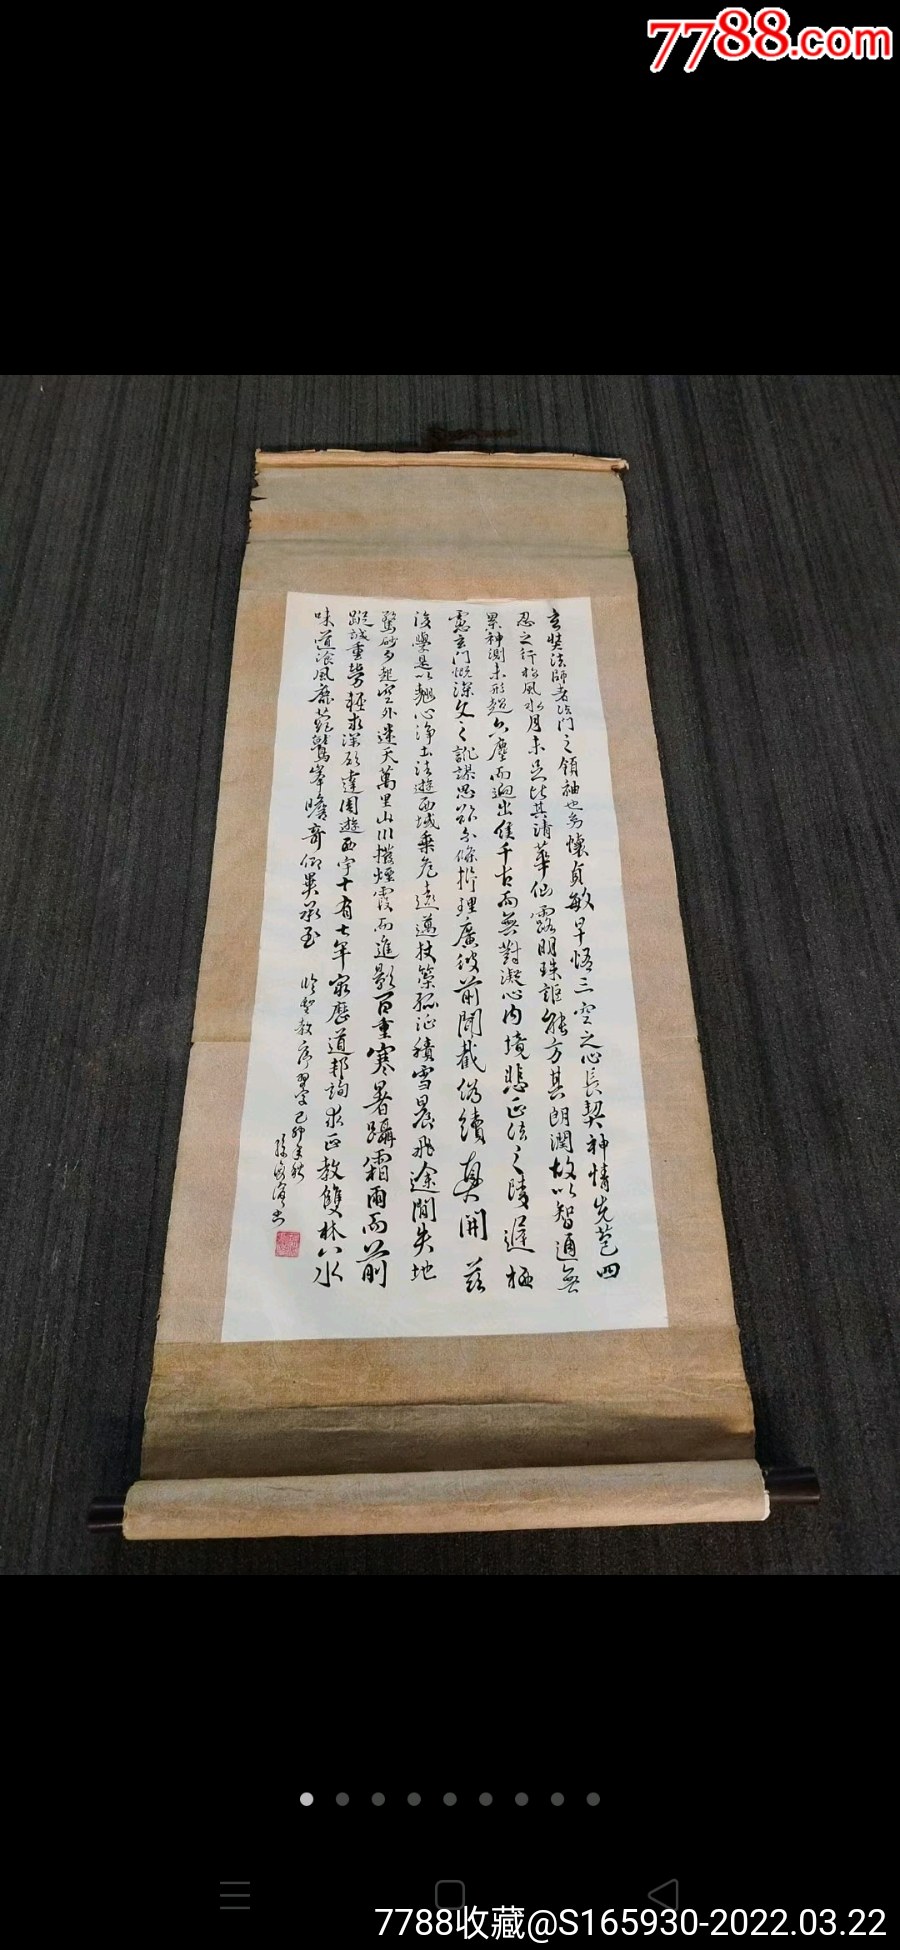 7788.com
玄奘法師者法門之領袖也幼懷貞敏早悟三空之心長契神情先苞四
忍之行松風水月未足比其清華仙露明珠詎能方其朗潤故以智通無
累神測未形超六塵而迥出隻千古而無對凝心內境悲正法之陵遲栖
慮玄門慨深文之訛謬思欲分條析理廣彼前聞截偽續真開茲
後學是以翹心淨土法遊西域乘危遠邁杖策孤征積雪晨飛途間失地
驚砂夕起空外迷天萬里山川撥煙霞而進影百重寒暑躡霜雨而前
蹤誠重勞輕求深願達周遊西宇十有七年窮歷道邦詢求正教雙林八水
味道飡風鹿菀鷲峯瞻奇仰異承至
臨聖教序習字己卯年秋
書
7788收藏@S165930-2022.03.22